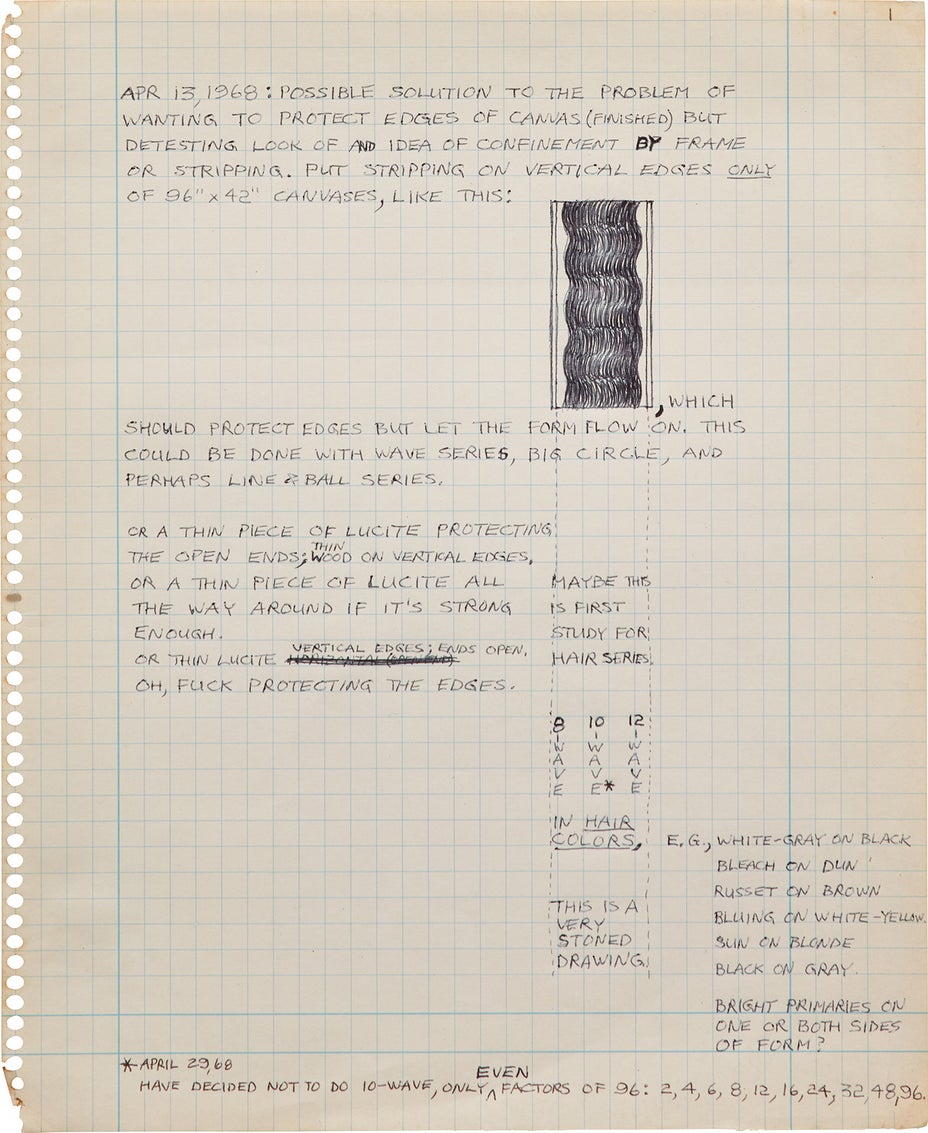 1
APR 13, 1968: POSSIBLE SOLUTION TO THE PROBLEM OF
WANTING TO PROTECT EDGES OF CANVAS (FINISHED) BUT
DETESTING LOOK OF AND IDEA OF CONFINEMENT BY FRAME
OR STRIPPING. PUT STRIPPING ON VERTICAL EDGES ONLY
OF 96" x 42" CANVASES, LIKE THIS:
, WHICH
SHOULD PROTECT EDGES BUT LET THE FORM FLOW ON. THIS
COULD BE DONE WITH WAVE SERIES, BIG CIRCLE, AND
PERHAPS LINE & BALL SERIES.
OR A THIN PIECE OF LUCITE PROTECTING
THE OPEN ENDS; THIN WOOD ON VERTICAL EDGES,
OR A THIN PIECE OF LUCITE ALL
THE WAY AROUND IF IT'S STRONG
ENOUGH.
OR THIN LUCITE HORIZONTAL (OPEN END) VERTICAL EDGES; ENDS OPEN,
OH, FUCK PROTECTING THE EDGES.
MAYBE THIS
IS FIRST
STUDY FOR
HAIR SERIES.
8-WAVE
10-WAVE*
12-WAVE
IN HAIR
COLORS,
E.G., WHITE-GRAY ON BLACK
BLEACH ON DUN
RUSSET ON BROWN
BLUING ON WHITE-YELLOW.
SUN ON BLONDE
BLACK ON GRAY.
BRIGHT PRIMARIES ON
ONE OR BOTH SIDES
OF FORM?
THIS IS A
VERY
STONED
DRAWING
*APRIL 29, 68
HAVE DECIDED NOT TO DO 10-WAVE, ONLY EVEN FACTORS OF 96: 2, 4, 6, 8, 12, 16, 24, 32, 48, 96.